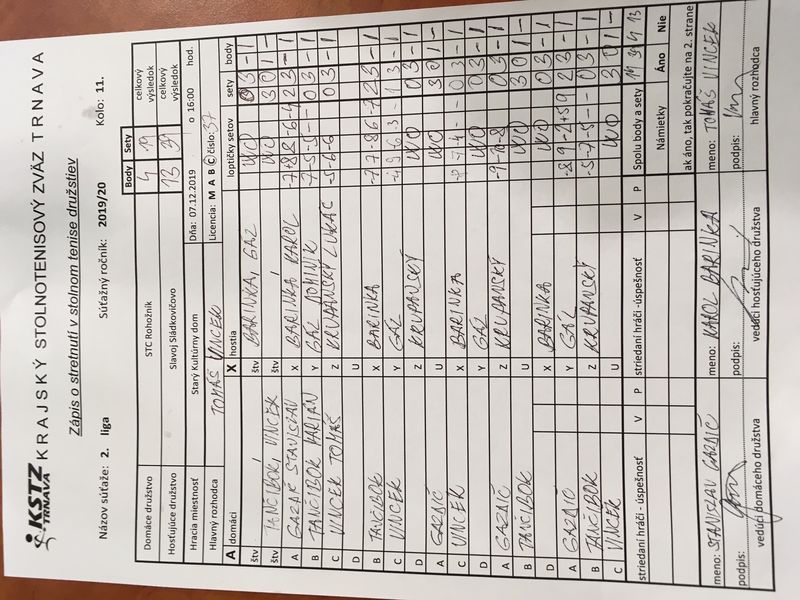 KSTZ TRNAVA KRAJSKÝ STOLNOTENISOVÝ ZVÄZ TRNAVA
Zápis o stretnutí v stolnom tenise družstiev
Názov súťaže: 2. liga Súťažný ročník: 2019/20 Kolo: 11.
Body Sety
Domáce družstvo STC Rohožník 4 19 celkový výsledok
Hosťujúce družstvo Slavoj Sládkovičovo 13 39 celkový výsledok
Hracia miestnosť Starý Kultúrny dom Dňa: 07.12.2019 o 16:00 hod.
Hlavný rozhodca TOMÁŠ VINCEK Licencia: M A B C číslo: 37
A domáci X hostia loptičky setov sety body
štv štv BARINKA, GÁL WO 0 3 - 1
štv TANČIBOK, VINCEK štv WO 3 0 1 -
A X BARINKA KAROL 2 3 - 1
B TANČIBOK MARIÁN Y GÁL DOMINIK -7 -5 -5 - - 0 3 - 1
C VINCEK TOMÁŠ Z LUKÁČ -5 -6 -6 0 3 - 1
D U
B TANČIBOK X BARINKA 2 3 - 1
C VINCEK Y GÁL 1 3 - 1
D Z WO 0 3 - 1
A U WO 3 0 1 -
C VINCEK X BARINKA 0 3 - 1
D Y GÁL WO 0 3 - 1
A Z -9 -10 -8 0 3 - 1
B TANČIBOK U WO 3 0 1 -
D X BARINKA WO 0 3 - 1
A Y GÁL 2 3 - 1
B TANČIBOK Z -5 -7 -5 - - 0 3 - 1
C VINCEK U WO 3 0 1 -
striedaní hráči -úspešnosť V P striedaní hráči -úspešnosť V P Spolu body a sety 19 39 4 13
Námietky Áno Nie
ak áno, tak pokračujte na 2. strane
meno: STANISLAV meno: KAROL BARINKA meno: TOMÁŠ VINCEK
podpis: podpis: podpis:
vedúci domáceho družstva vedúci hosťujúceho družstva hlavný rozhodca